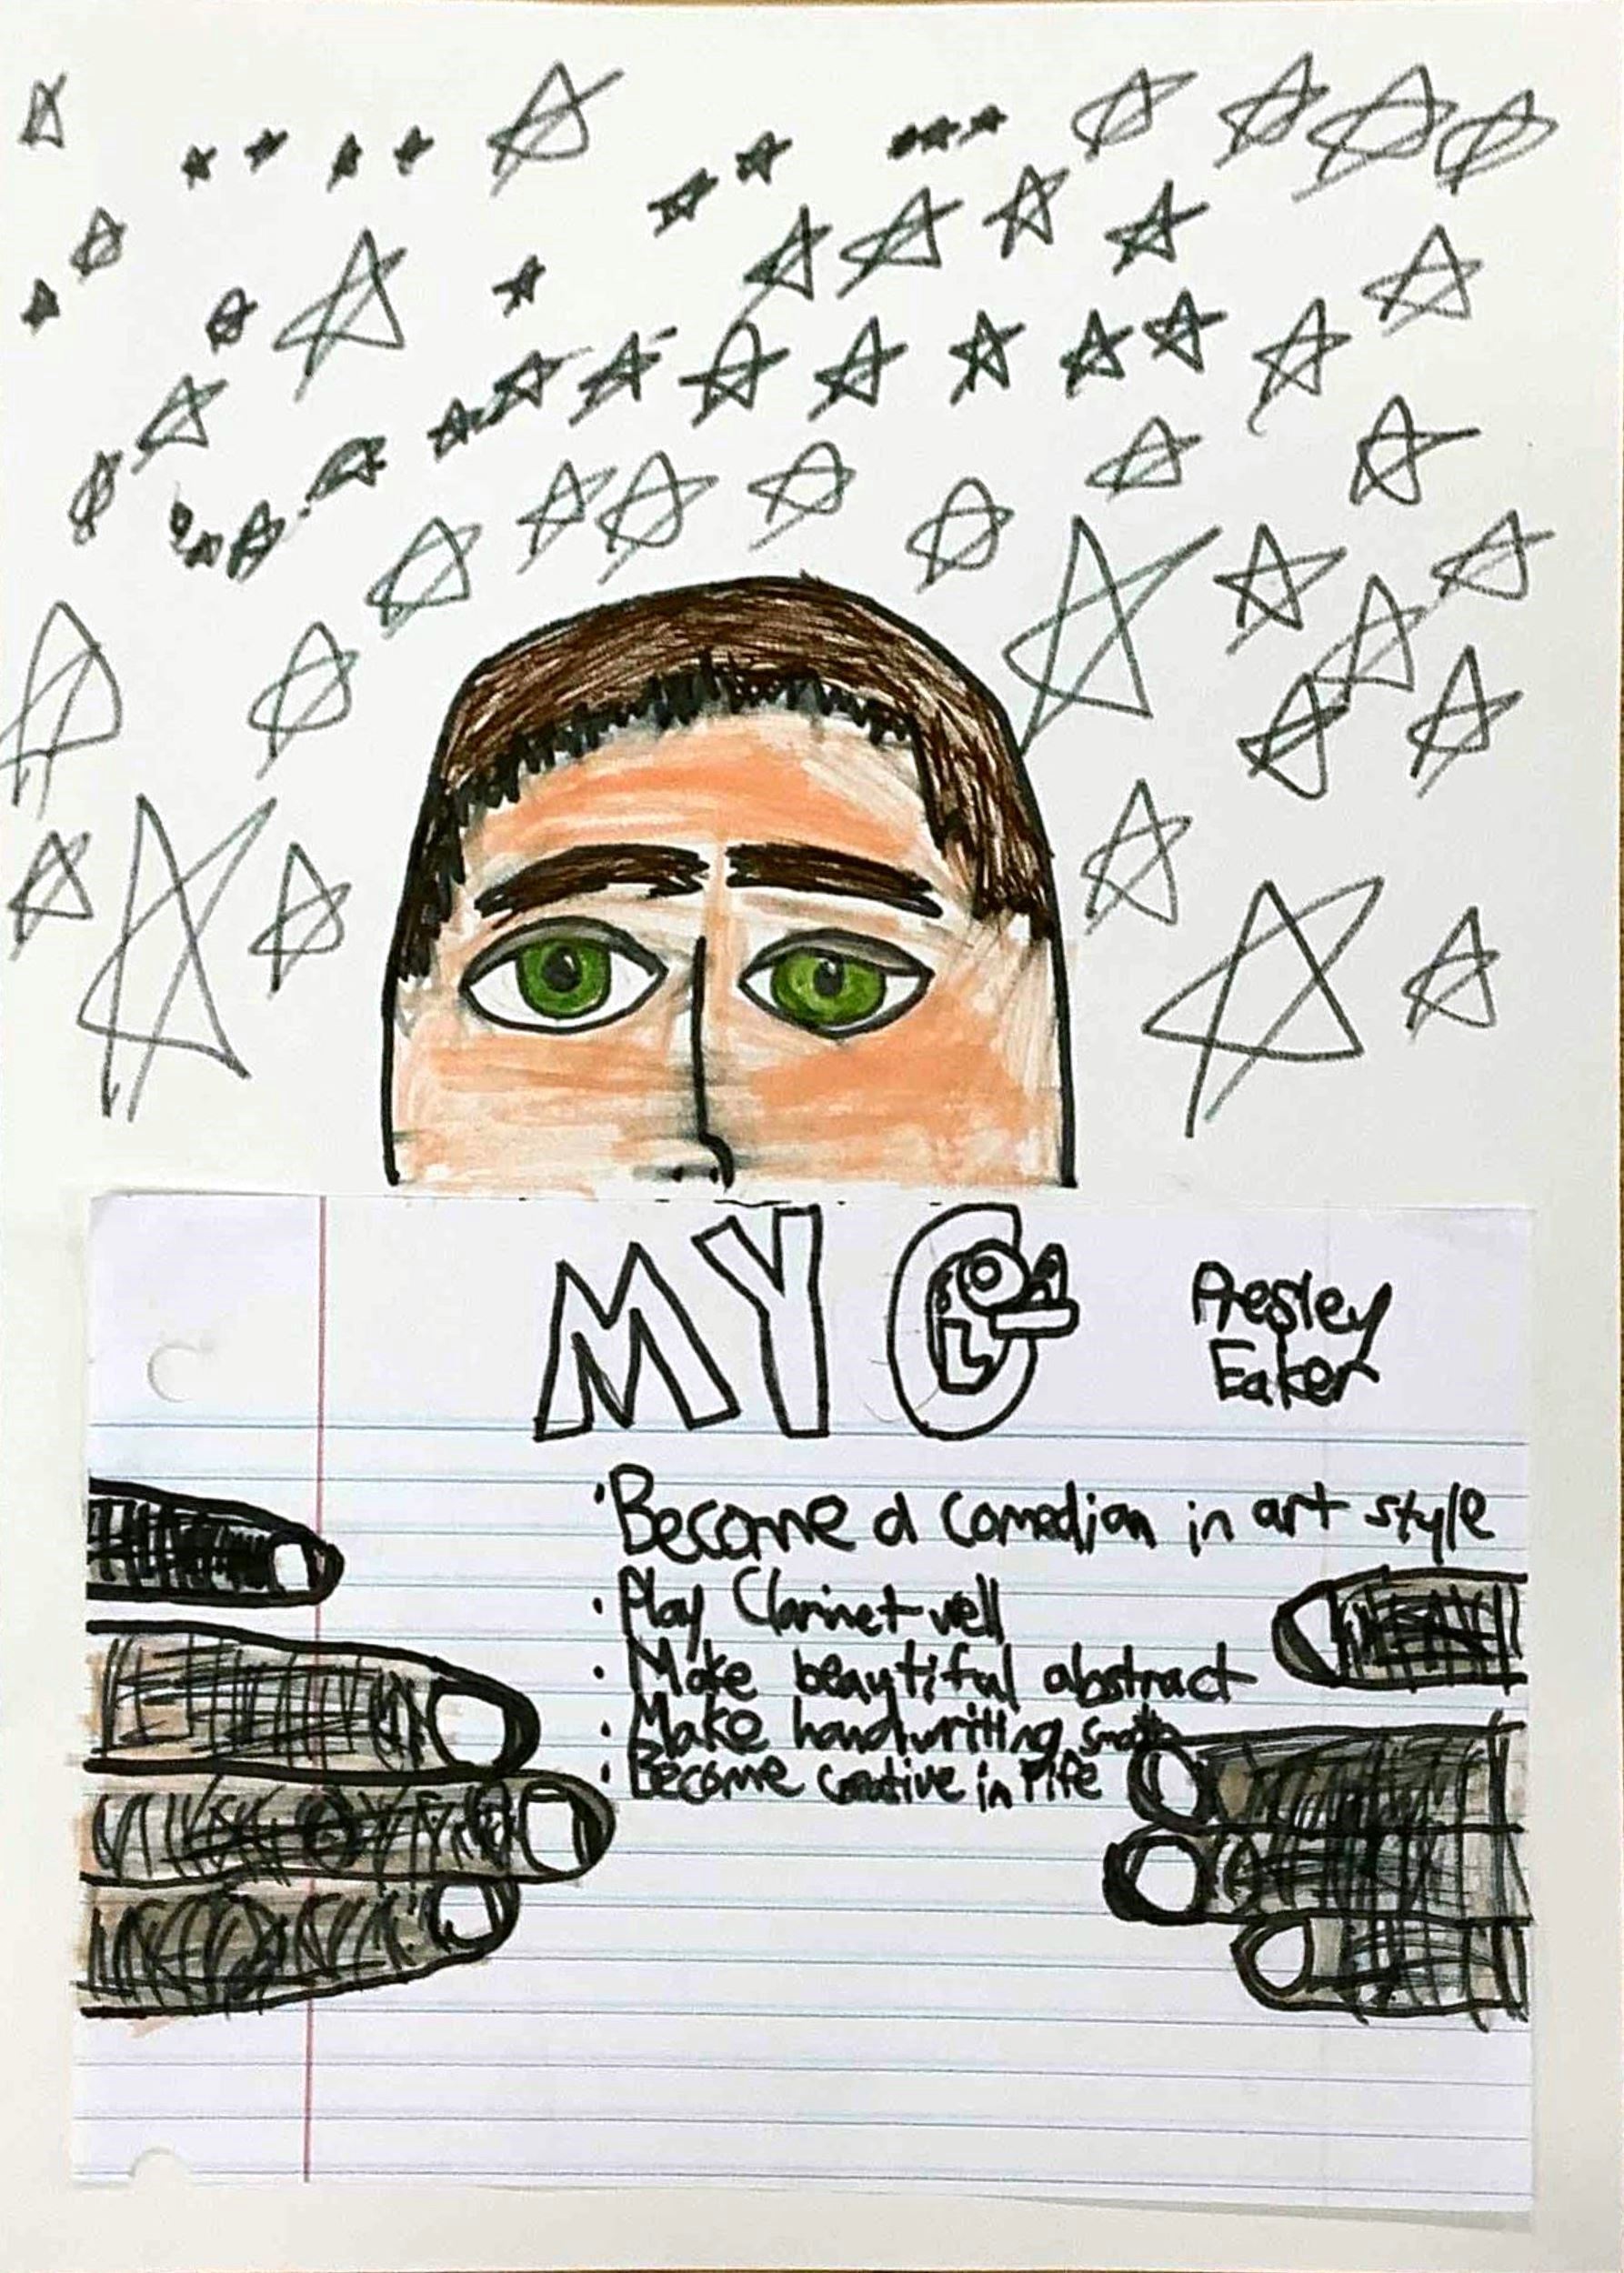 MY GOALS
Presley
Eaker
• Become a comedian in art style
• Play Clarinet well
• Make beautiful abstract
• Make handwritting
• Become creative in life